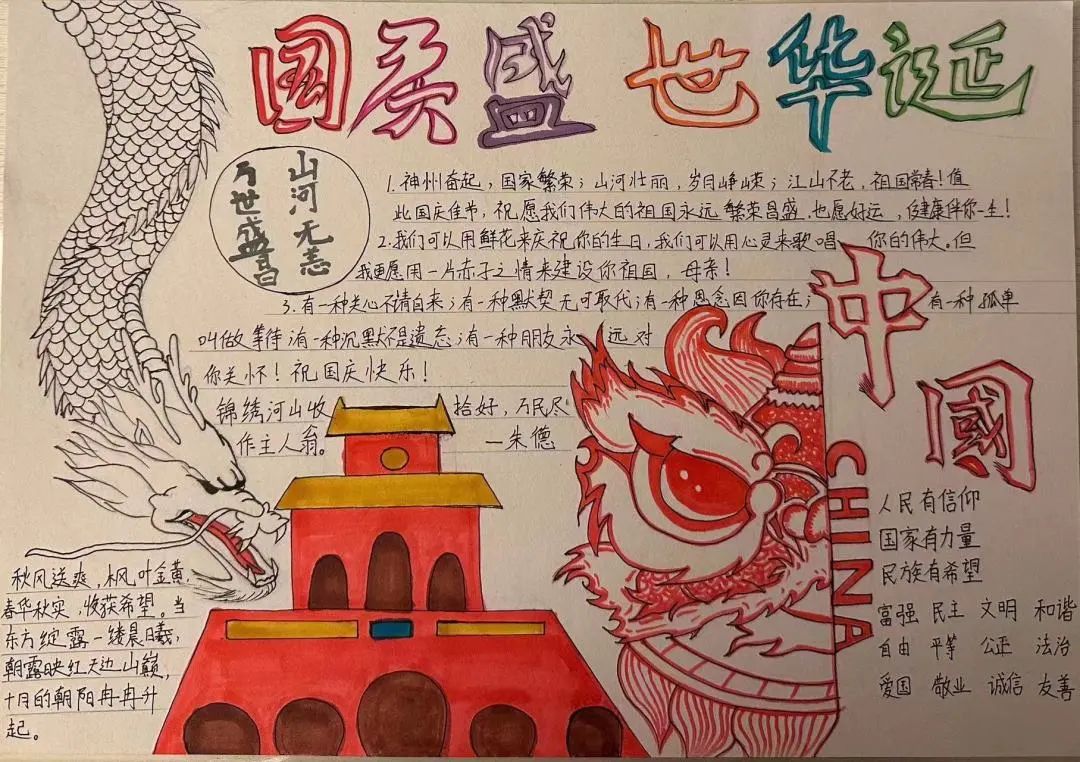 国 盛世华诞
山河无恙
万世盛昌
1.神州奋起，国家繁荣；山河壮丽，岁月峥嵘；江山不老，祖国常春！值
此国庆佳节，祝愿我们伟大的祖国永远繁荣昌盛，也愿好运，健康伴你一生！
2.我们可以用鲜花来庆祝你的生日，我们可以用心灵来歌唱 你的伟大。但
我更愿用一片赤子之情来建设你祖国，母亲！
3.有一种关心不请自来；有一种默契无可取代；有一种思念因你存在；有一种孤单
叫做等待；有一种沉默不是遗忘；有一种朋友永 远对
你关怀！祝国庆快乐！
锦绣河山收 拾好，万民尽
作主人翁。 —朱德
秋风送爽，枫叶金黄，
春华秋实，收获希望。当
东方绽露一缕晨曦，
朝露映红天边山巅，
十月的朝阳冉冉升
起。
中國
CHINA
人民有信仰
国家有力量
民族有希望
富强 民主 文明 和谐
自由 平等 公正 法治
爱国 敬业 诚信 友善